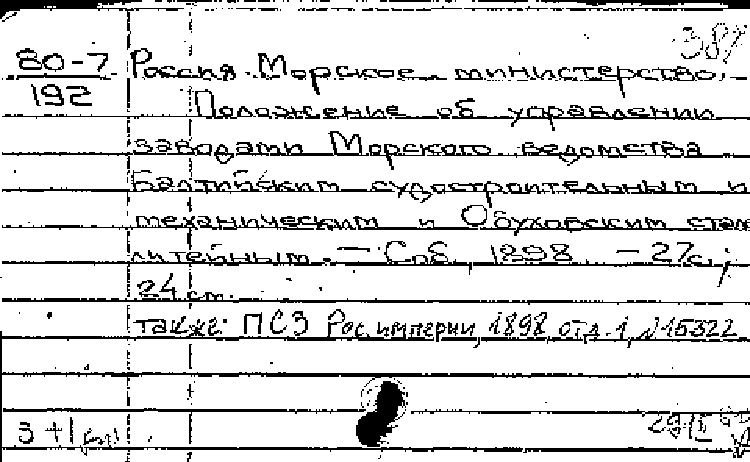 381
80-7 Россия. Морское министерство.
192
Положение об управлении
заводами Морского ведомства
Балтийским судостроительным и
механическим и Обуховским стале
литейным. — Спб, 1898. — 27с.;
24 см.
также: ПСЗ Рос. империи, 1898, отд. 1, №15322
3 + 1
29/II